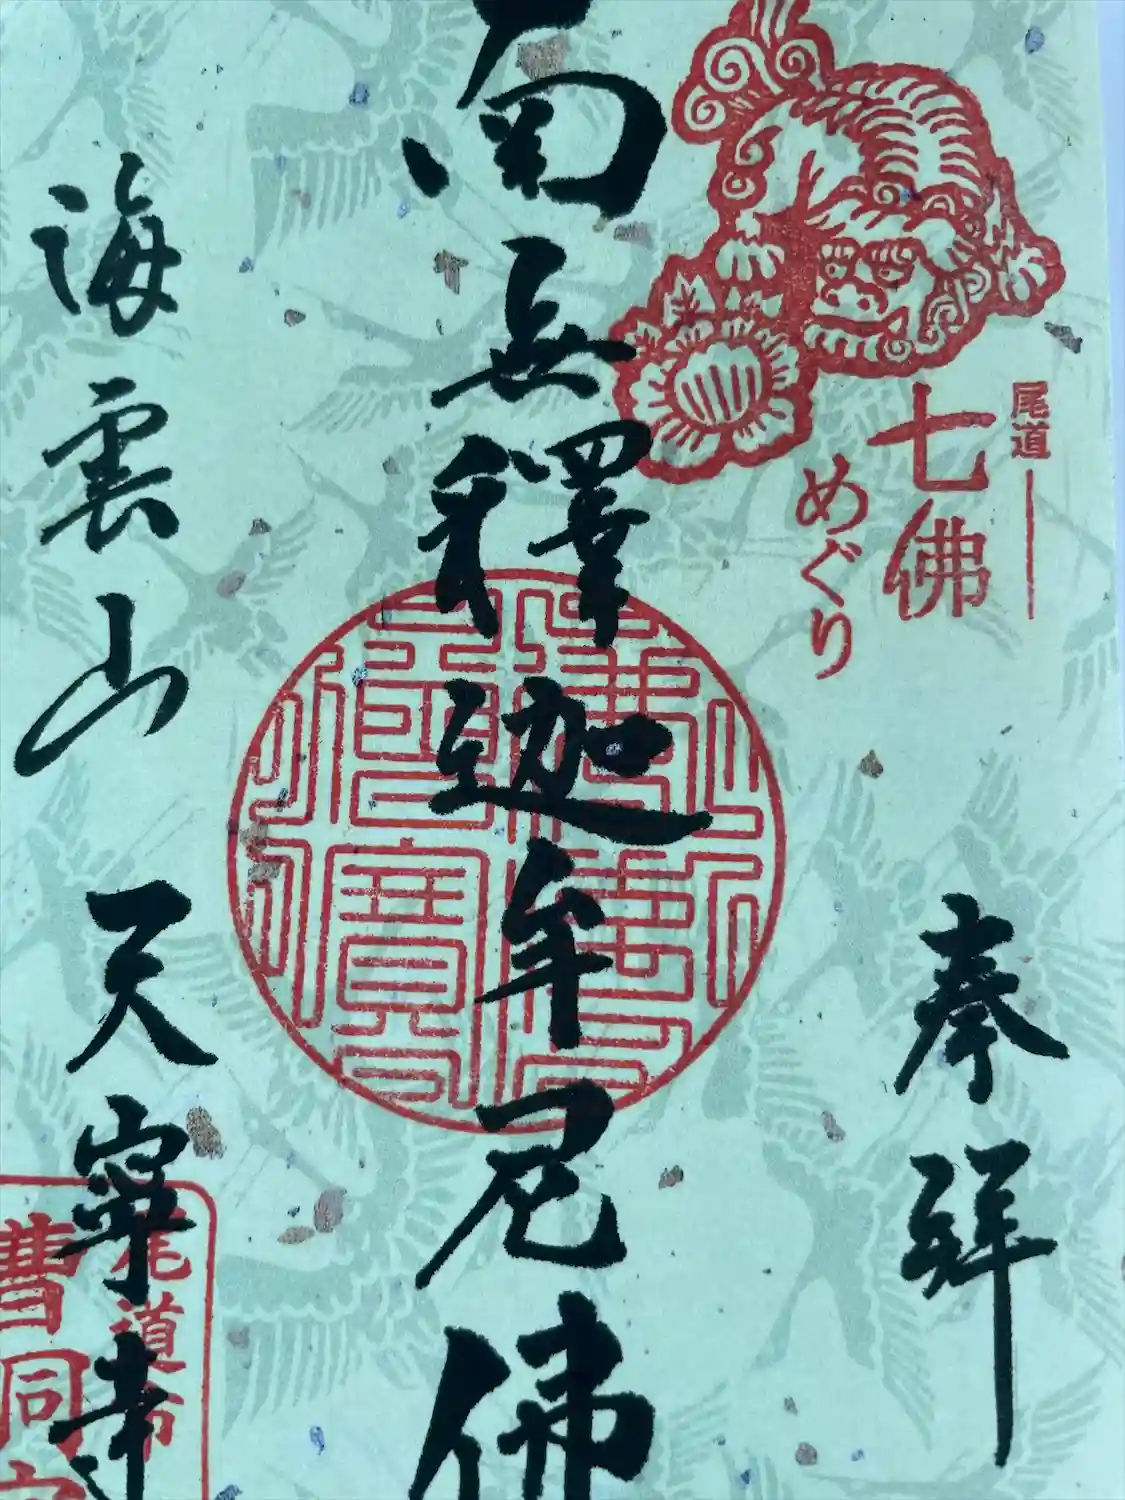 尾道
七佛
めぐり
奉拜
南無釋迦牟尼佛
佛法僧寶
海雲山
天寧寺
尾道市
曹同宗